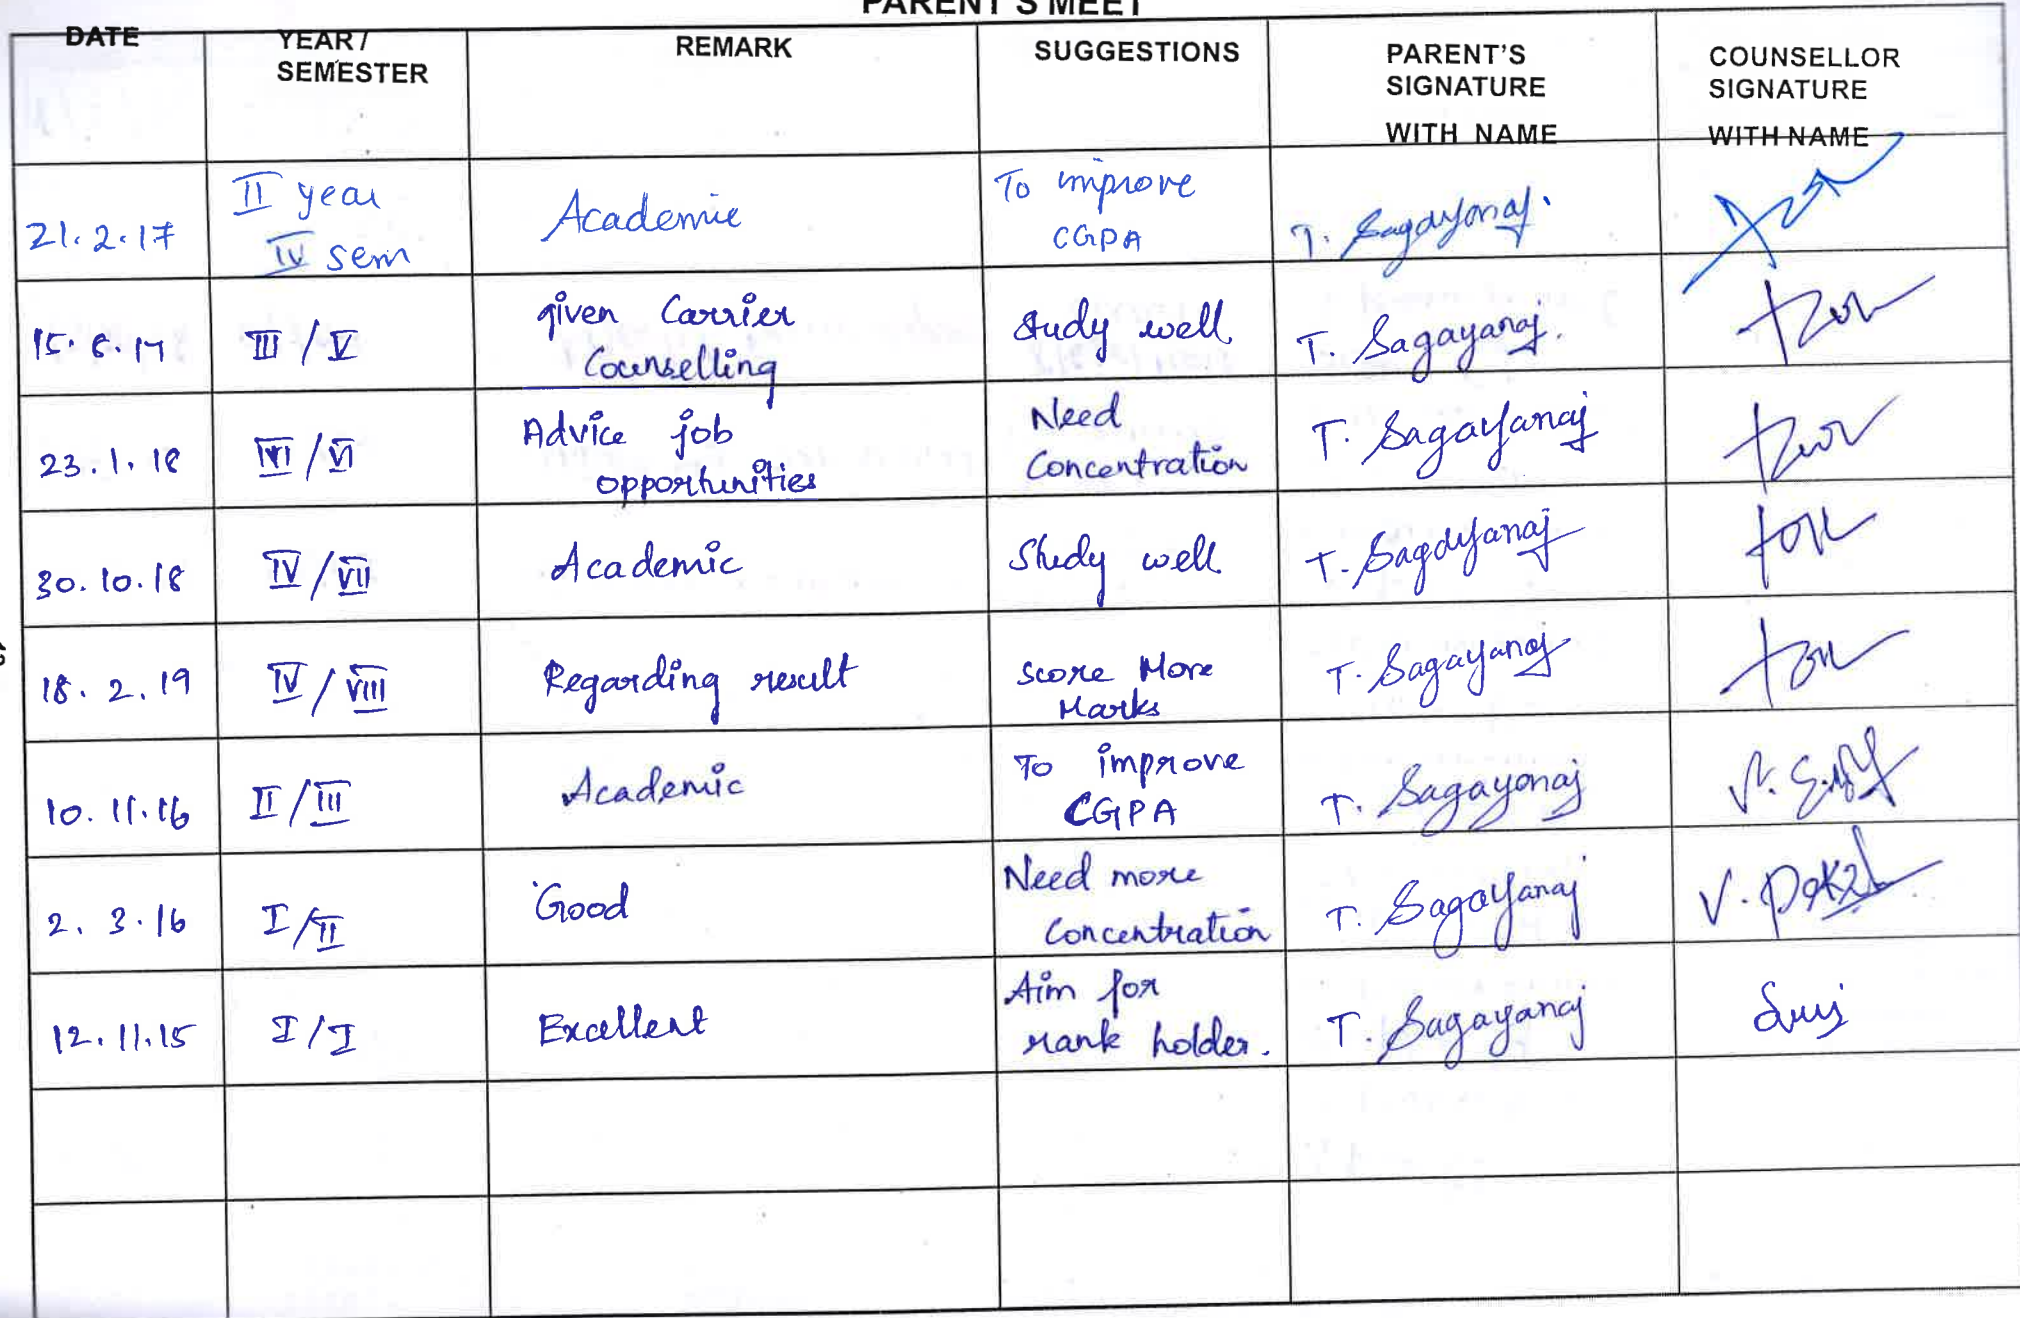 PARENT'S MEET
DATE YEAR / SEMESTER REMARK SUGGESTIONS PARENT'S SIGNATURE WITH NAME COUNSELLOR SIGNATURE WITH NAME
21.2.17 II year IV sem Academic To improve CGPA T. Sagayaraj.
III / V given Carrier Counselling Study well T. Sagayaraj.
23.1.18 / VI Advice job opportunities Need Concentration T. Sagayaraj
30.10.18 IV / VII Academic Study well T. Sagayaraj
18.2.19 IV / VIII Regarding result Score More Marks T. Sagayaraj
10.11.16 II / III Academic To improve CGPA T. Sagayaraj
2.3.16 I / II Good Need more Concentration T. Sagayaraj V.
12.11.15 I / I Excellent Aim for rank holder. T. Sagayaraj